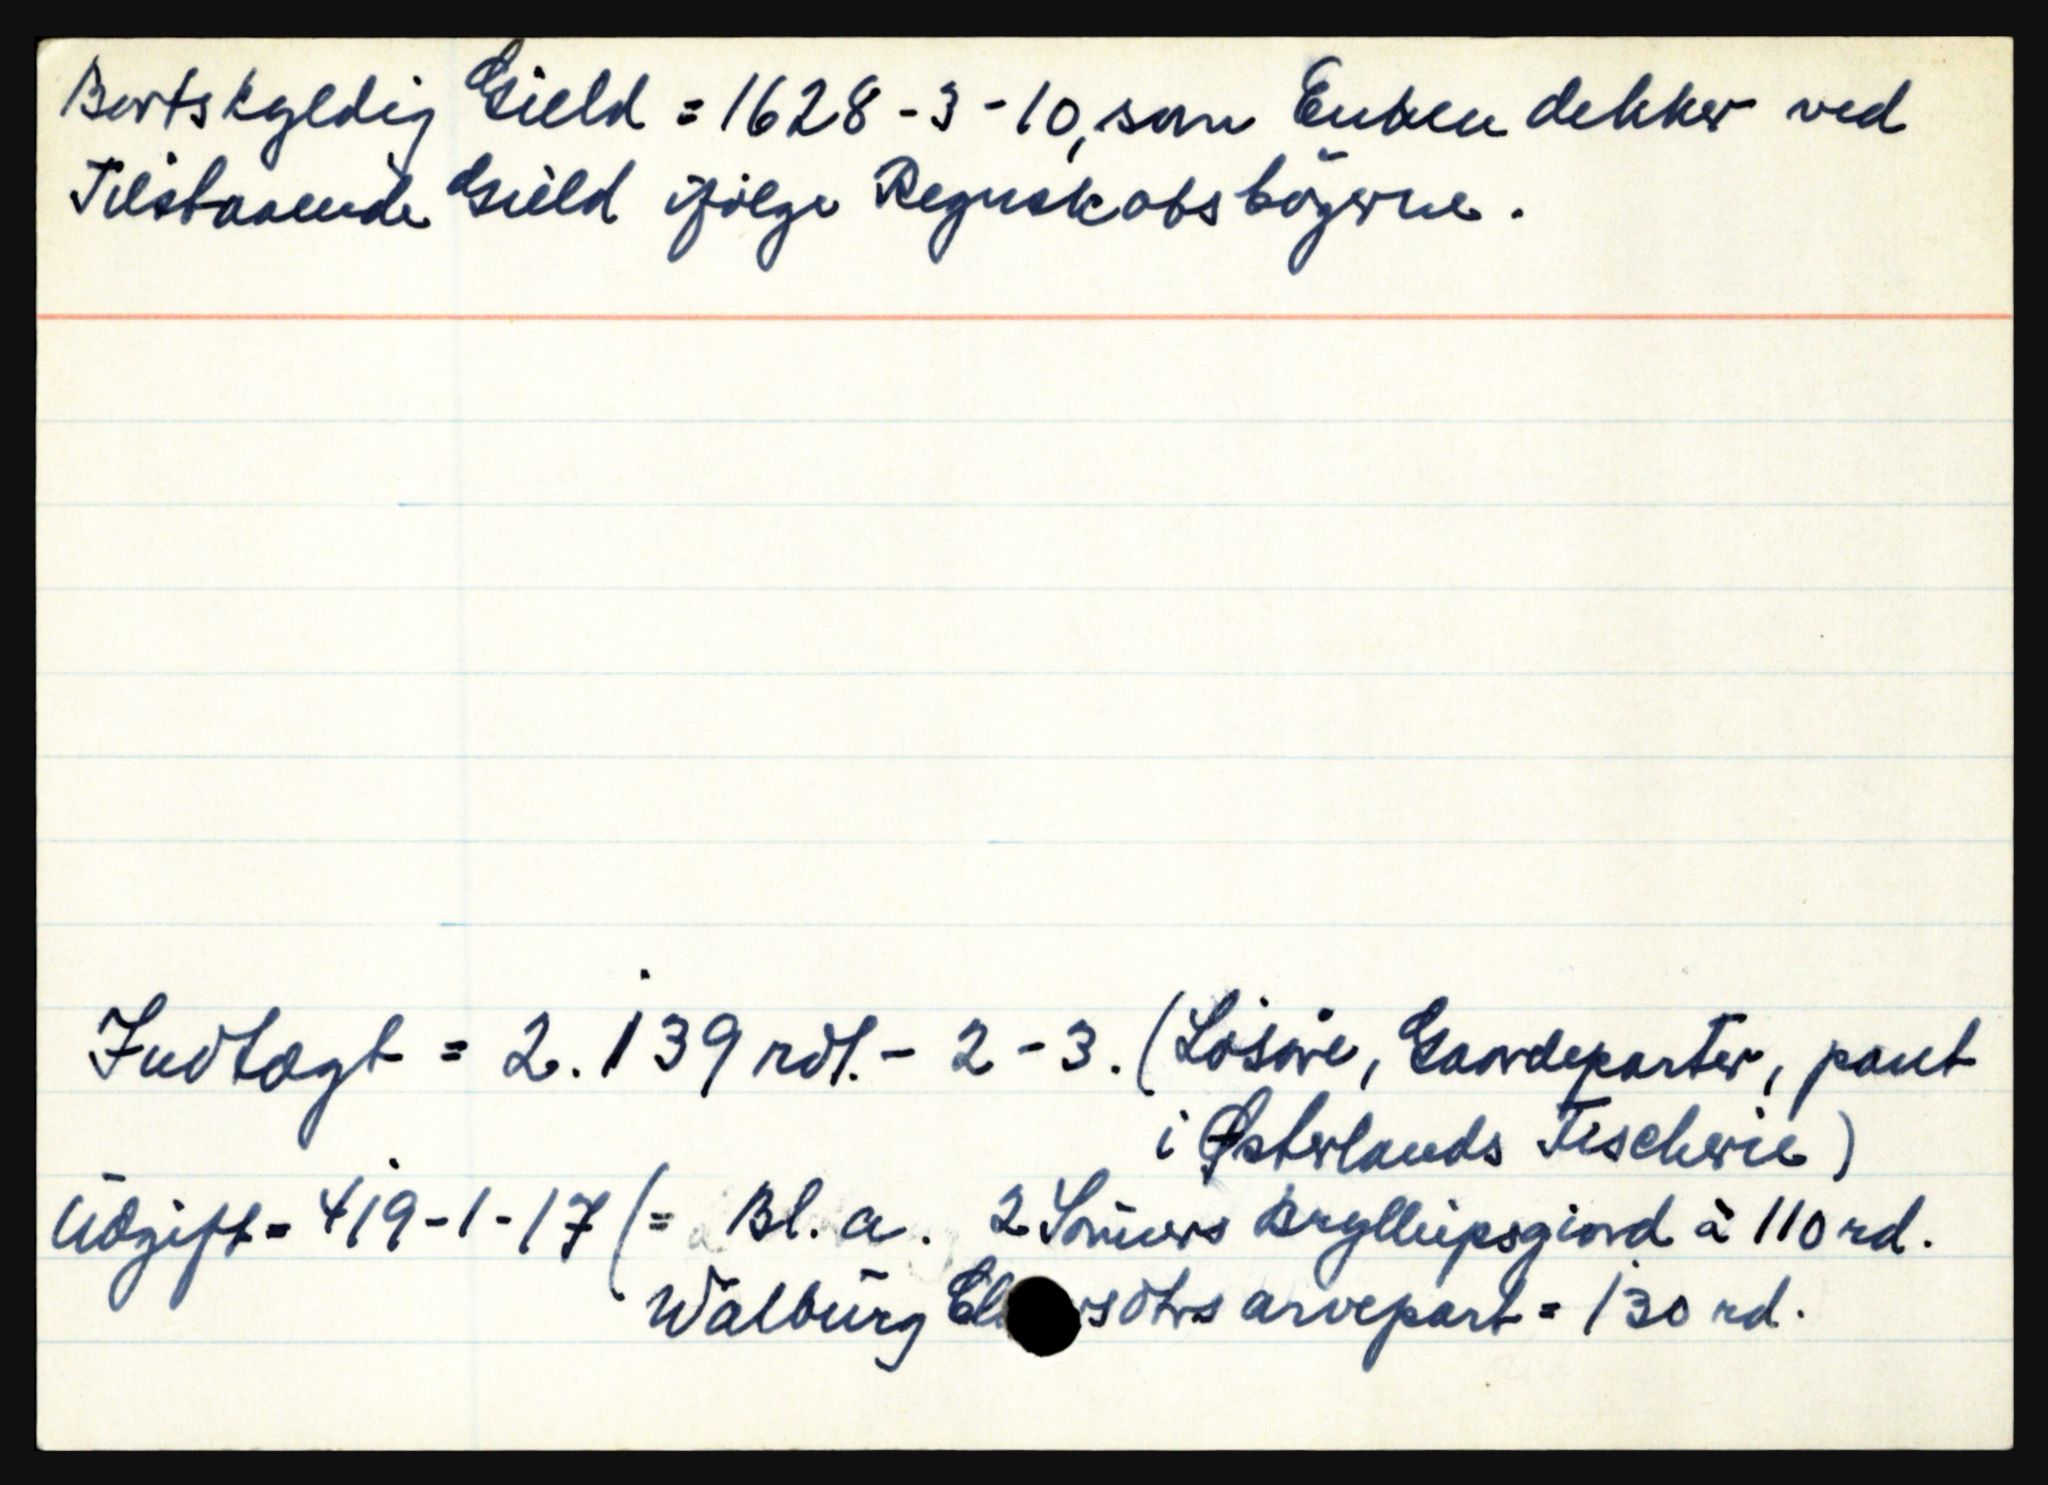 Bortskyldig Gield = 1628-3-10, som Enken dekker ved
Tilstaaende Gield ifölge Regnskabsbögerne.
Indtægt = 2.139 rdl. - 2 - 3. (Lösöre, Gaardeparter, pant
i Østerlands Fischerie)
Udgift = 419-1-17 (= Bl. a. 2 Sönners Bryllupsgiard à 110 rd.
Walburg arvepart = 130 rd.